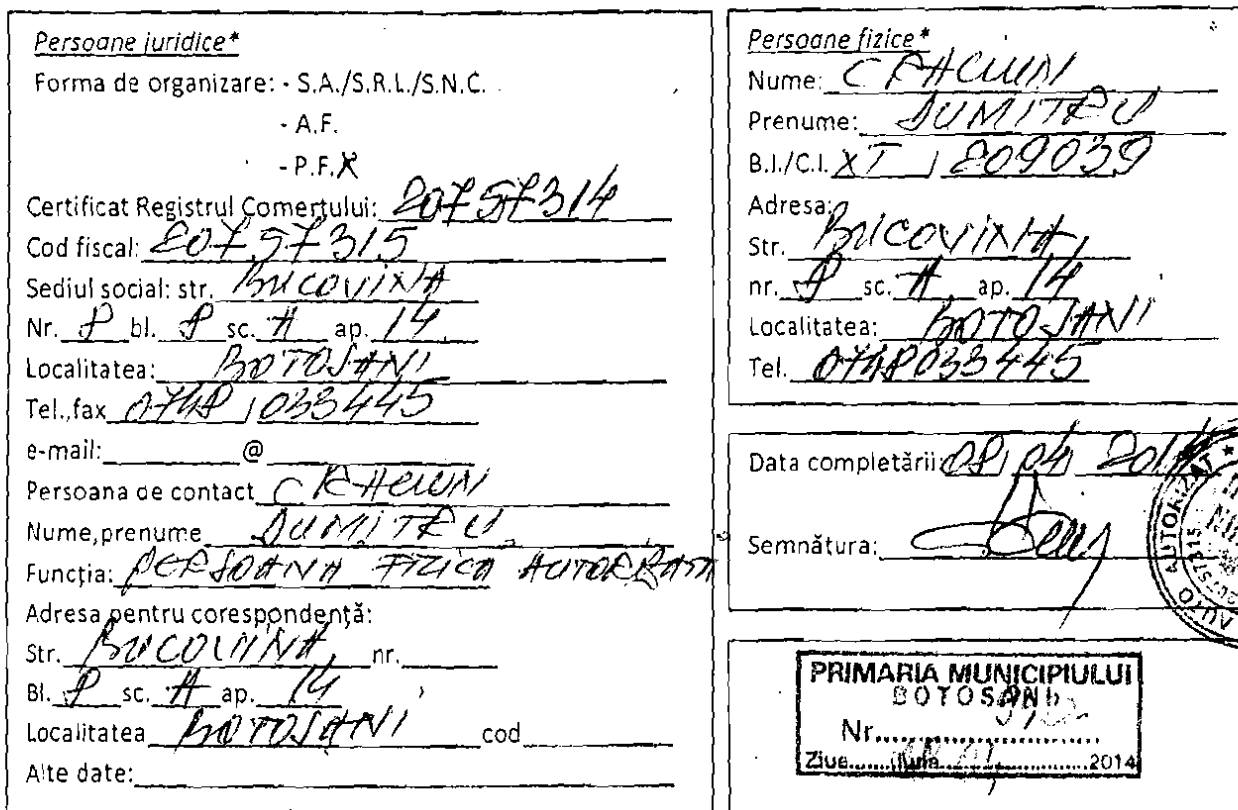 Persoane juridice*
Forma de organizare: - S.A./S.R.L./S.N.C.
- A.F.
- P.F.X
Certificat Registrul Comerțului: 20757314
Cod fiscal: 20757315
Sediul social: str. BUCOVINA
Nr. 8 bl. 8 sc. A ap. 14
Localitatea: BOTOSANI
Tel.,fax 0748 033445
e-mail: @
Persoana de contact CRACIUN
Nume,prenume DUMITRU
Funcția: PERSOANA FIZICA AUTORIZATA
Adresa pentru corespondență:
Str. BUCOVINA, nr.
Bl. 8 sc. A ap. 14
Localitatea BOTOSANI cod
Alte date:
Persoane fizice*
Nume: CRACIUN
Prenume: DUMITRU
B.I./C.I. XT 809039
Adresa:
Str. BUCOVINA,
nr. 8 sc. A ap. 14
Localitatea: BOTOSANI
Tel. 0748033445
Data completării: 08 04 2014
Semnătura:
AUTORIZAT
20757315
AUTO
PRIMARIA MUNICIPIULUI
BOTOSANI
Nr.
Ziua luna 2014